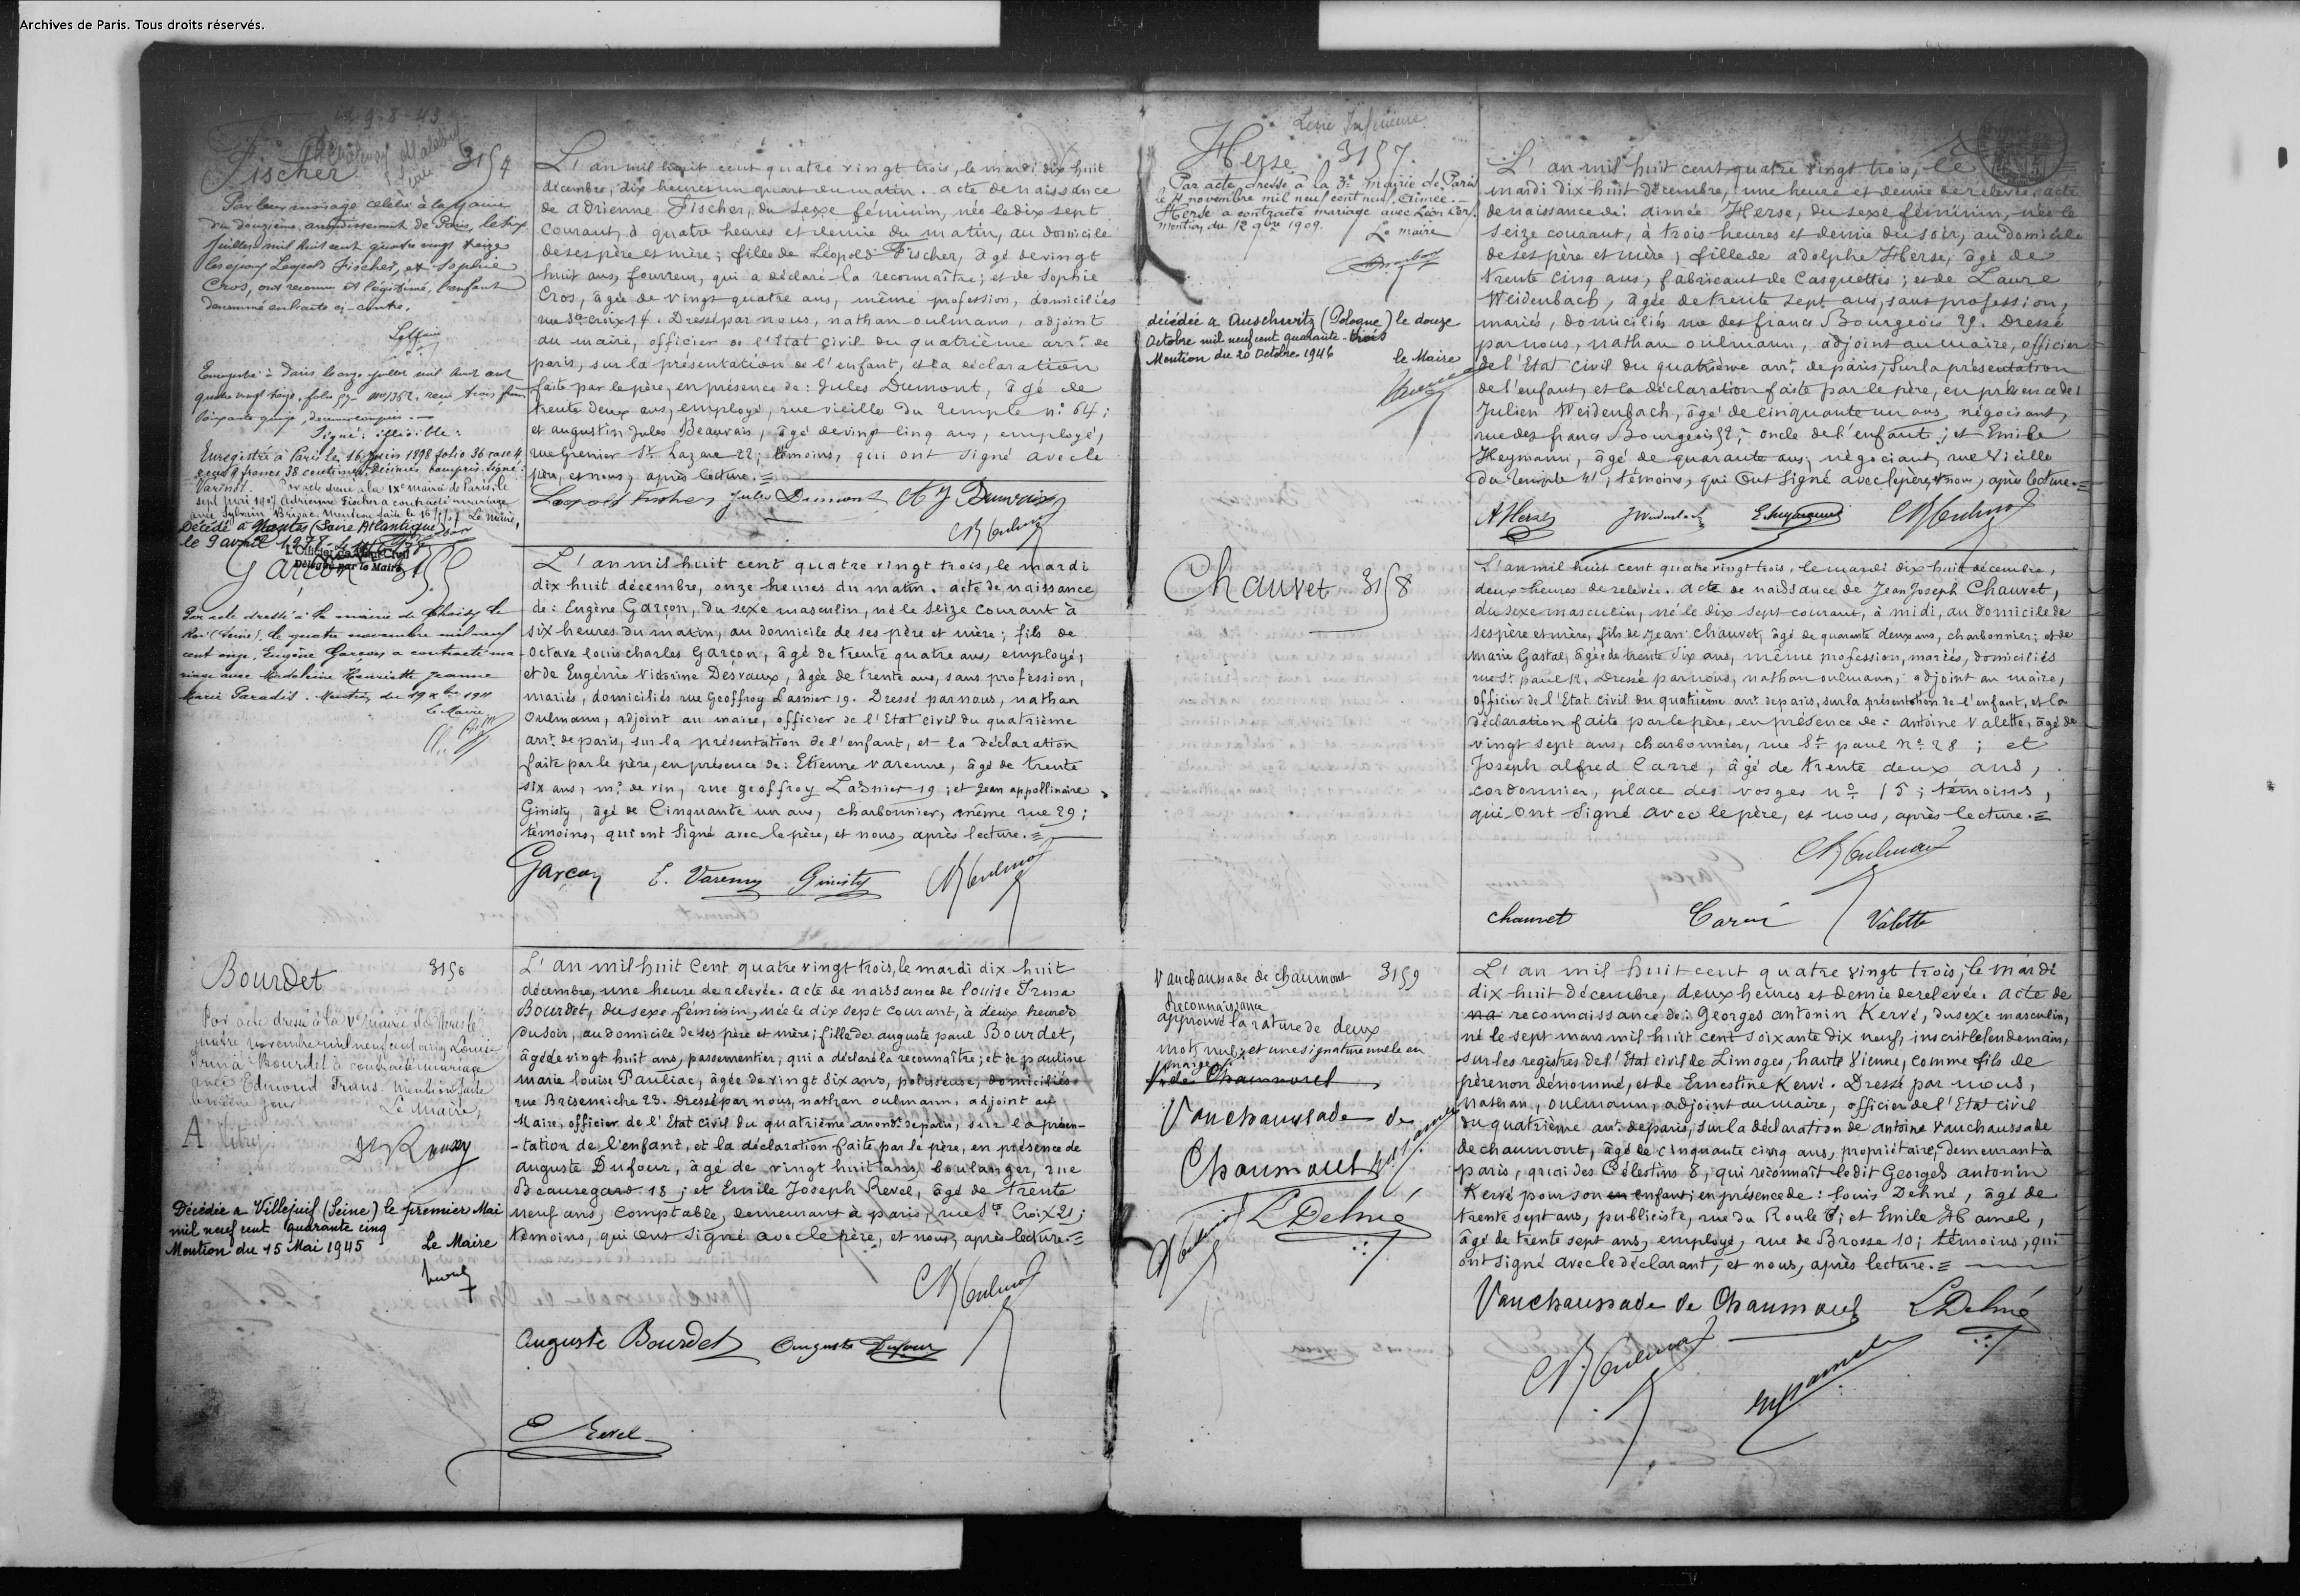 Archives de Paris. Tous droits réservés.
Fischer 3154
Par leur mariage célébré à la Mairie
du douzième arrondissement de Paris, le dix
Juillet mil huit cent quatre vingt treize
les époux Léopold Fischer, et Sophie
Cros, ont reconnu et légitimé, l'enfant
dénommé en l'acte ci-contre.
Enregistré à Paris le 16 Juin 1898 folio 36 case 4
reçu 9 francs 38 centimes Décimes compris. signé:
Par acte dressé à la IXe mairie de Paris, le
Adrienne Fischer a contracté mariage
avec Sylvain
Décédé à Nantes (Loire Atlantique)
le 9 avril 1978
L'Officier de l'Etat Civil
Délégué par le Maire
L'an mil huit cent quatre vingt trois, le mardi dix huit
décembre, dix heures un quart du matin. acte de naissance
de adrienne Fischer, du sexe féminin, née le dix sept
courant, à quatre heures et demie du matin, au domicile
de ses père et mère; fille de Léopold Fischer, âgé de vingt
huit ans, fourreur, qui a déclaré la reconnaître; et de Sophie
Cros, âgée de vingt quatre ans, même profession, domiciliés
rue Ste croix 14. Dressé par nous, nathan oulmann, adjoint
au maire, officier de l'Etat civil du quatrième arrt. de
paris, sur la présentation de l'enfant, et la déclaration
faite par le père, en présence de: Jules Dumont, âgé de
trente deux ans, employé, rue vieille du Temple n° 64;
et augustin Jules Beauvais, âgé de vingt cinq ans, employé,
rue Grenier St. Lazare 22; témoins, qui ont signé avec le
père, et nous, après lecture.
Léopold Fischer Jules Dumont A J Beauvais
Garçon 3155
Par acte dressé à la mairie de Choisy le
Roi (Seine), le quatre novembre mil neuf
cent onze, Eugène Garçon a contracté ma-
riage avec Madeleine Henriette Jeanne
Marie Paradis. Mention du 19 1911
le Maire
L'an mil huit cent quatre vingt trois, le mardi
dix huit décembre, onze heures du matin. acte de naissance
de: Eugène Garçon, du sexe masculin, né le seize courant à
six heures du matin, au domicile de ses père et mère; fils de
octave louis charles Garçon, âgé de trente quatre ans, employé,
et de Eugénie Victorine Desvaux, âgée de trente ans, sans profession,
mariés, domiciliés rue Geoffroy Lasnier 19. Dressé par nous, nathan
oulmann, adjoint au maire, officier de l'Etat civil du quatrième
arrt. de paris, sur la présentation de l'enfant, et la déclaration
faite par le père, en présence de: Etienne varenne, âgé de trente
six ans, md. de vin, rue geoffroy Lasnier 19; et Jean appollinaire
Ginisty, âgé de Cinquante un ans, charbonnier, même rue 29;
témoins, qui ont signé avec le père, et nous, après lecture.
Garçon E. Varenne Ginisty
Bourdet 3156
Par acte dressé à la Ve mairie
quatre novembre mil neuf cent cinq Louise
Irma Bourdet a contracté mariage
avec Edmond Frans. Mention faite
le même jour
Le Maire,
Décédée à Villejuif (Seine) le premier Mai
mil neuf cent quarante cinq
Mention du 15 Mai 1945 Le Maire
L'an mil huit Cent quatre vingt trois, le mardi dix huit
décembre, une heure de relevée. acte de naissance de louise Irma
Bourdet, du sexe féminin, née le dix sept courant, à deux heures
du soir, au domicile de ses père et mère; fille de auguste paul Bourdet,
âgé de vingt huit ans, passementier, qui a déclaré la reconnaître; et de pauline
marie louise Pauliac, âgée de vingt six ans, polisseuse, domiciliés
rue Brisemiche 23. dressé par nous, nathan oulmann, adjoint au
Maire, officier de l'Etat civil du quatrième arrondt. de paris, sur la présen-
-tation de l'enfant, et la déclaration faite par le père, en présence de
auguste Dufour, âgé de vingt huit ans, boulanger, rue
Beauregard 18; et Emile Joseph Revel, âgé de trente
neuf ans, comptable, demeurant à paris, rue Ste Croix 21;
témoins, qui ont signé avec le père, et nous, après lecture.
auguste Bourdet auguste Dufour
E Revel
Herse 3157.
Par acte dressé à la 3e mairie de Paris
le novembre mil neuf cent neuf, Aimée
Herse a contracté mariage avec Léon
Mention du 12 9bre 1909.
Le maire
décédée à Auschwitz (Pologne) le douze
Octobre mil neuf cent quarante-trois
Mention du 20 Octobre 1946 le Maire
L'an mil huit cent quatre vingt trois, le
mardi dix huit décembre, une heure et demie de relevée. acte
de naissance de: aimée Herse, du sexe féminin, née le
seize courant, à trois heures et demie du soir, au domicile
de ses père et mère; fille de adolphe Herse, âgé de
trente cinq ans, fabricant de casquettes; et de Laure
Weidenbach, âgée de trente sept ans, sans profession,
mariés, domiciliés rue des francs Bourgeois 29. Dressé
par nous, nathan oulmann, adjoint au maire, officier
de l'Etat civil du quatrième arrt. de paris, sur la présentation
de l'enfant, et la déclaration faite par le père, en présence de:
Julien Weidenbach, âgé de cinquante un ans, négociant,
rue des francs Bourgeois 52, oncle de l'enfant; et Emile
Heymann, âgé de quarante ans, négociant, rue Vieille
du Temple 41, témoins, qui ont signé avec le père, et nous, après lecture.
A Herse
Chauvet 3158
L'an mil huit cent quatre vingt trois, le mardi dix huit décembre,
deux heures de relevée. acte de naissance de Jean Joseph Chauvet,
du sexe masculin, né le dix sept courant, à midi, au domicile de
ses père et mère, fils de Jean Chauvet, âgé de quarante deux ans, charbonnier; et de
marie Gastal, âgée de trente six ans, même profession, mariés, domiciliés
rue St. paul. Dressé par nous, nathan oulmann, adjoint au maire,
officier de l'Etat civil du quatrième arrt. de paris, sur la présentation de l'enfant, et la
déclaration faite par le père, en présence de: antoine Valette, âgé de
vingt sept ans, charbonnier, rue St. paul n° 28; et
Joseph alfred Carré, âgé de trente deux ans,
cordonnier, place des vosges n° 15; témoins,
qui ont signé avec le père, et nous, après lecture.
chauvet Carré Valette
Vauchaussade de chaumont 3159
Reconnaissance
approuvé la rature de deux
mots nuls et une signature nulle en
marge
Vauchaussade de
Chaumont
L Dehné
L'an mil huit cent quatre vingt trois, le mardi
dix huit décembre, deux heures et demie de relevée. acte de
na reconnaissance de: Georges antonin Kervé, du sexe masculin,
né le sept mars mil huit cent soixante dix neuf, inscrit le lendemain,
sur les registres de l'Etat civil de Limoges, haute Vienne, comme fils de
père non dénommé, et de Ernestine Kervé. Dressé par nous,
Nathan, oulmann, adjoint au maire, officier de l'Etat civil
du quatrième arrt. de paris, sur la déclaration de antoine Vauchaussade
de chaumont, âgé de cinquante cinq ans, propriétaire, demeurant à
paris, quai des Célestins 8, qui reconnaît ledit Georges antonin
Kervé pour son en enfant; en présence de: louis Dehné, âgé de
trente sept ans, publiciste, rue du Roule 6; et Emile Hamel,
âgé de trente sept ans, employé, rue de Brosse 10; témoins, qui
ont signé avec le déclarant, et nous, après lecture.
Vauchaussade de Chaumont L Dehné